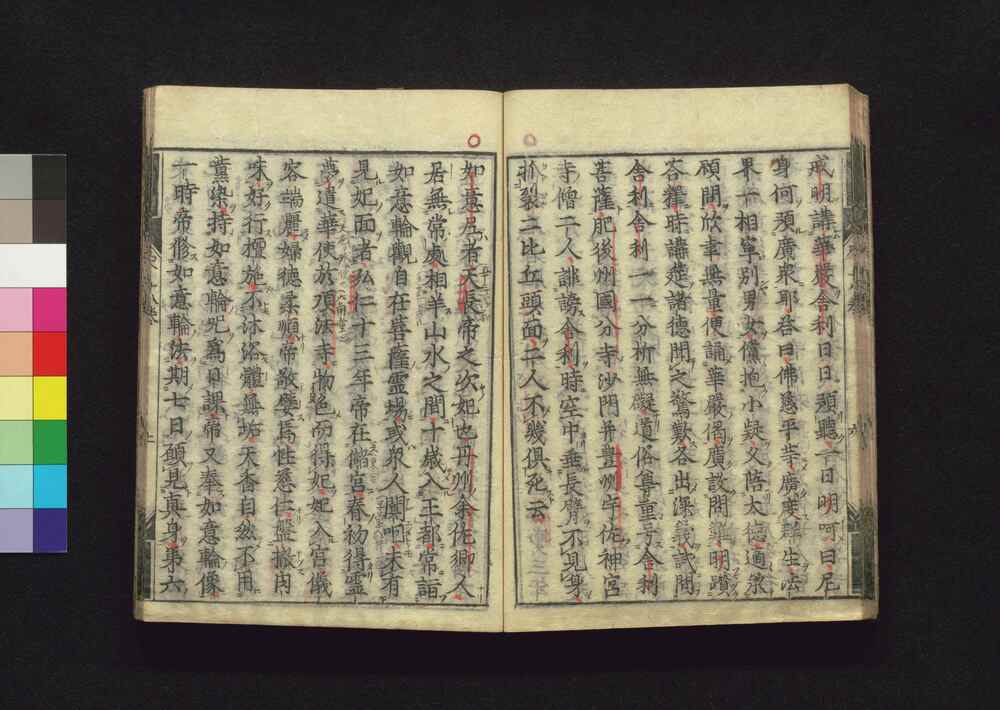 戒明講華嚴舍利日日預聽一日明呵曰尼
身何預廣衆耶答曰佛慈平等廣度群生法
界一相寧別男女儻抱小疑又陪大德適衆
顧問欣幸無量便誦華嚴偈廣設問難明躓
答釋時講莚諸德聞之驚歎各出深義試問
舍利舍利一一分析無礙道俗尊重号舍利
菩薩肥後州國分寺沙門并豊州宇佐神宮
寺僧二人誹謗舍利時空中垂長臂不見身
抓裂二比丘頭面二人不幾俱死云
如意尼者天長帝之次妃也丹州余佐鄉人
居無常處相羊山水之間十歲入王都常詣
如意輪觀自在菩薩靈場或衆人闐咽未有
見妃面者弘仁十三年帝在儲宮春初得靈
夢遣華使於頂法寺物色而得妃妃入宮儀
容端麗婦德柔順帝敵嬖焉性慈仁盤撤內
味好行檀施不沐浴體無垢天香自然不用
薰染持如意輪咒爲日課帝又奉如意輪像
一時帝修如意輪法期七日願見真身第六